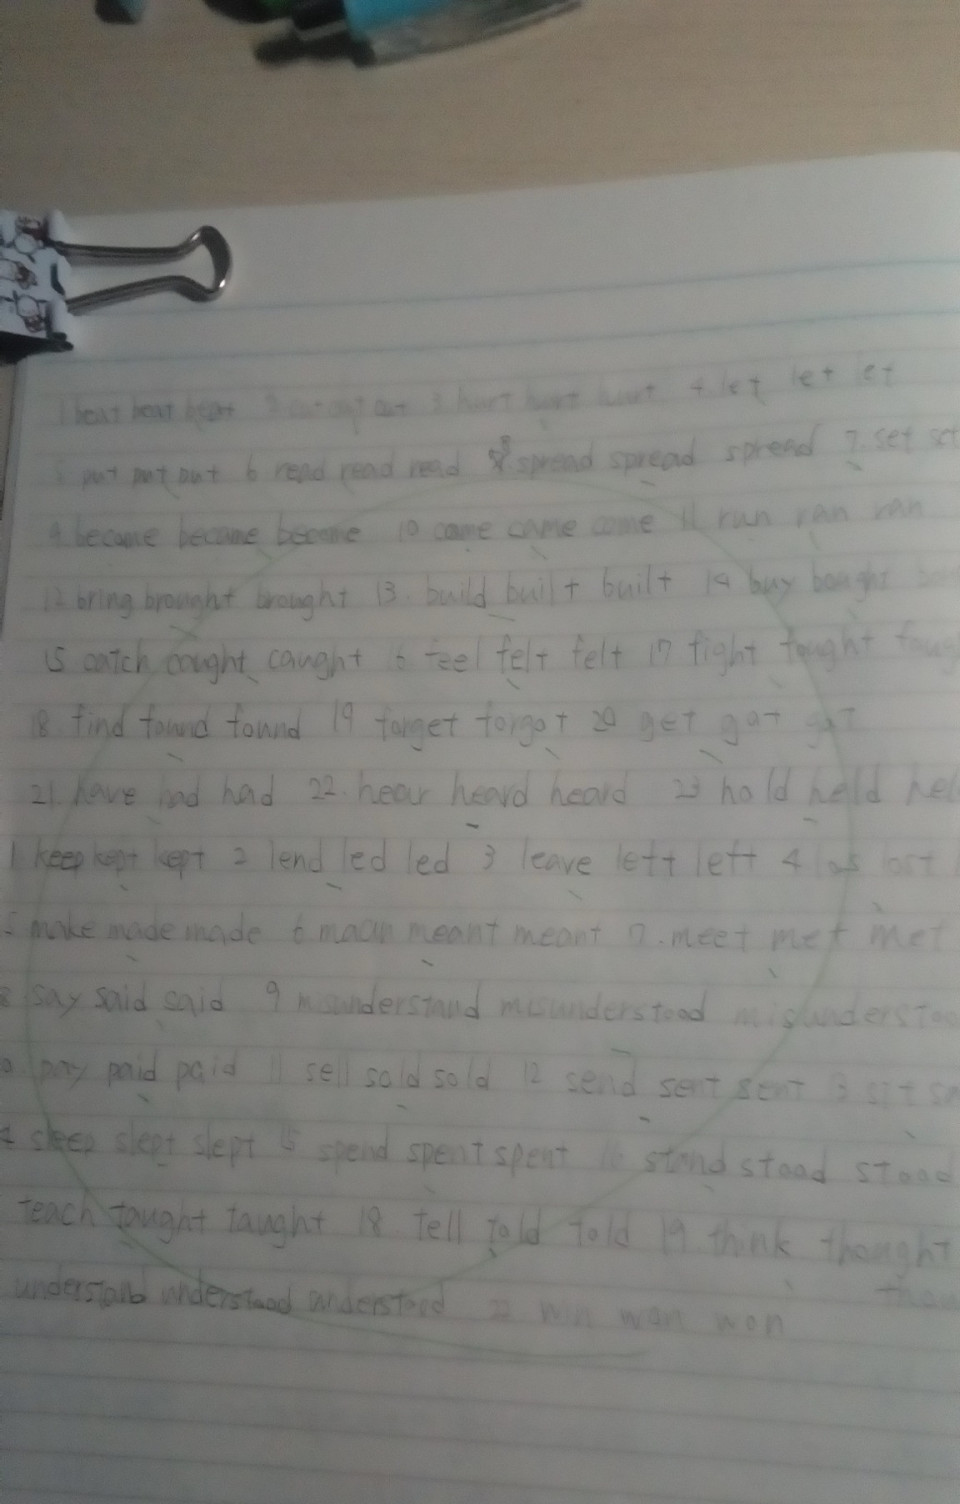 1 beat beat beat 2 cut cut cut 3 hurt hurt hurt 4. let let let
5 put put put 6 read read read 8 spread spread spread 7. set set
9 became became become 10 came came come 11 run ran ran
12 bring brought brought 13. build built built 14 buy bought
15 catch cought caught 16 feel felt felt 17 fight fought
18 find found found 19 forget forgot 20 get got got
21. have had had 22. hear heard heard 23 hold held
1 keep kept kept 2 lend led led 3 leave left left 4 los lost
5 make made made 6 mean meant meant 7. meet met met
8 say said said 9 misunderstand misunderstood
pay paid paid 11 sell sold sold 12 send sent sent 3 sit
sleep slept slept 15 spend spent spent 16 stand stood stood
teach taught taught 18 tell told told 19 think thought
understand understood understood 22 win won won